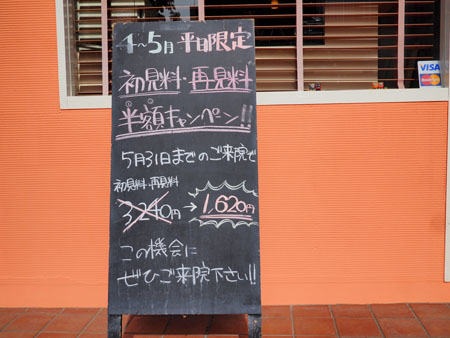 4～5月 平日限定
初見料・再見料
半額キャンペーン!!
5月31日までのご来院で
初見料・再見料
3,240円→1,620円
この機会に
ぜひご来院下さい!!
VISA
MasterCard